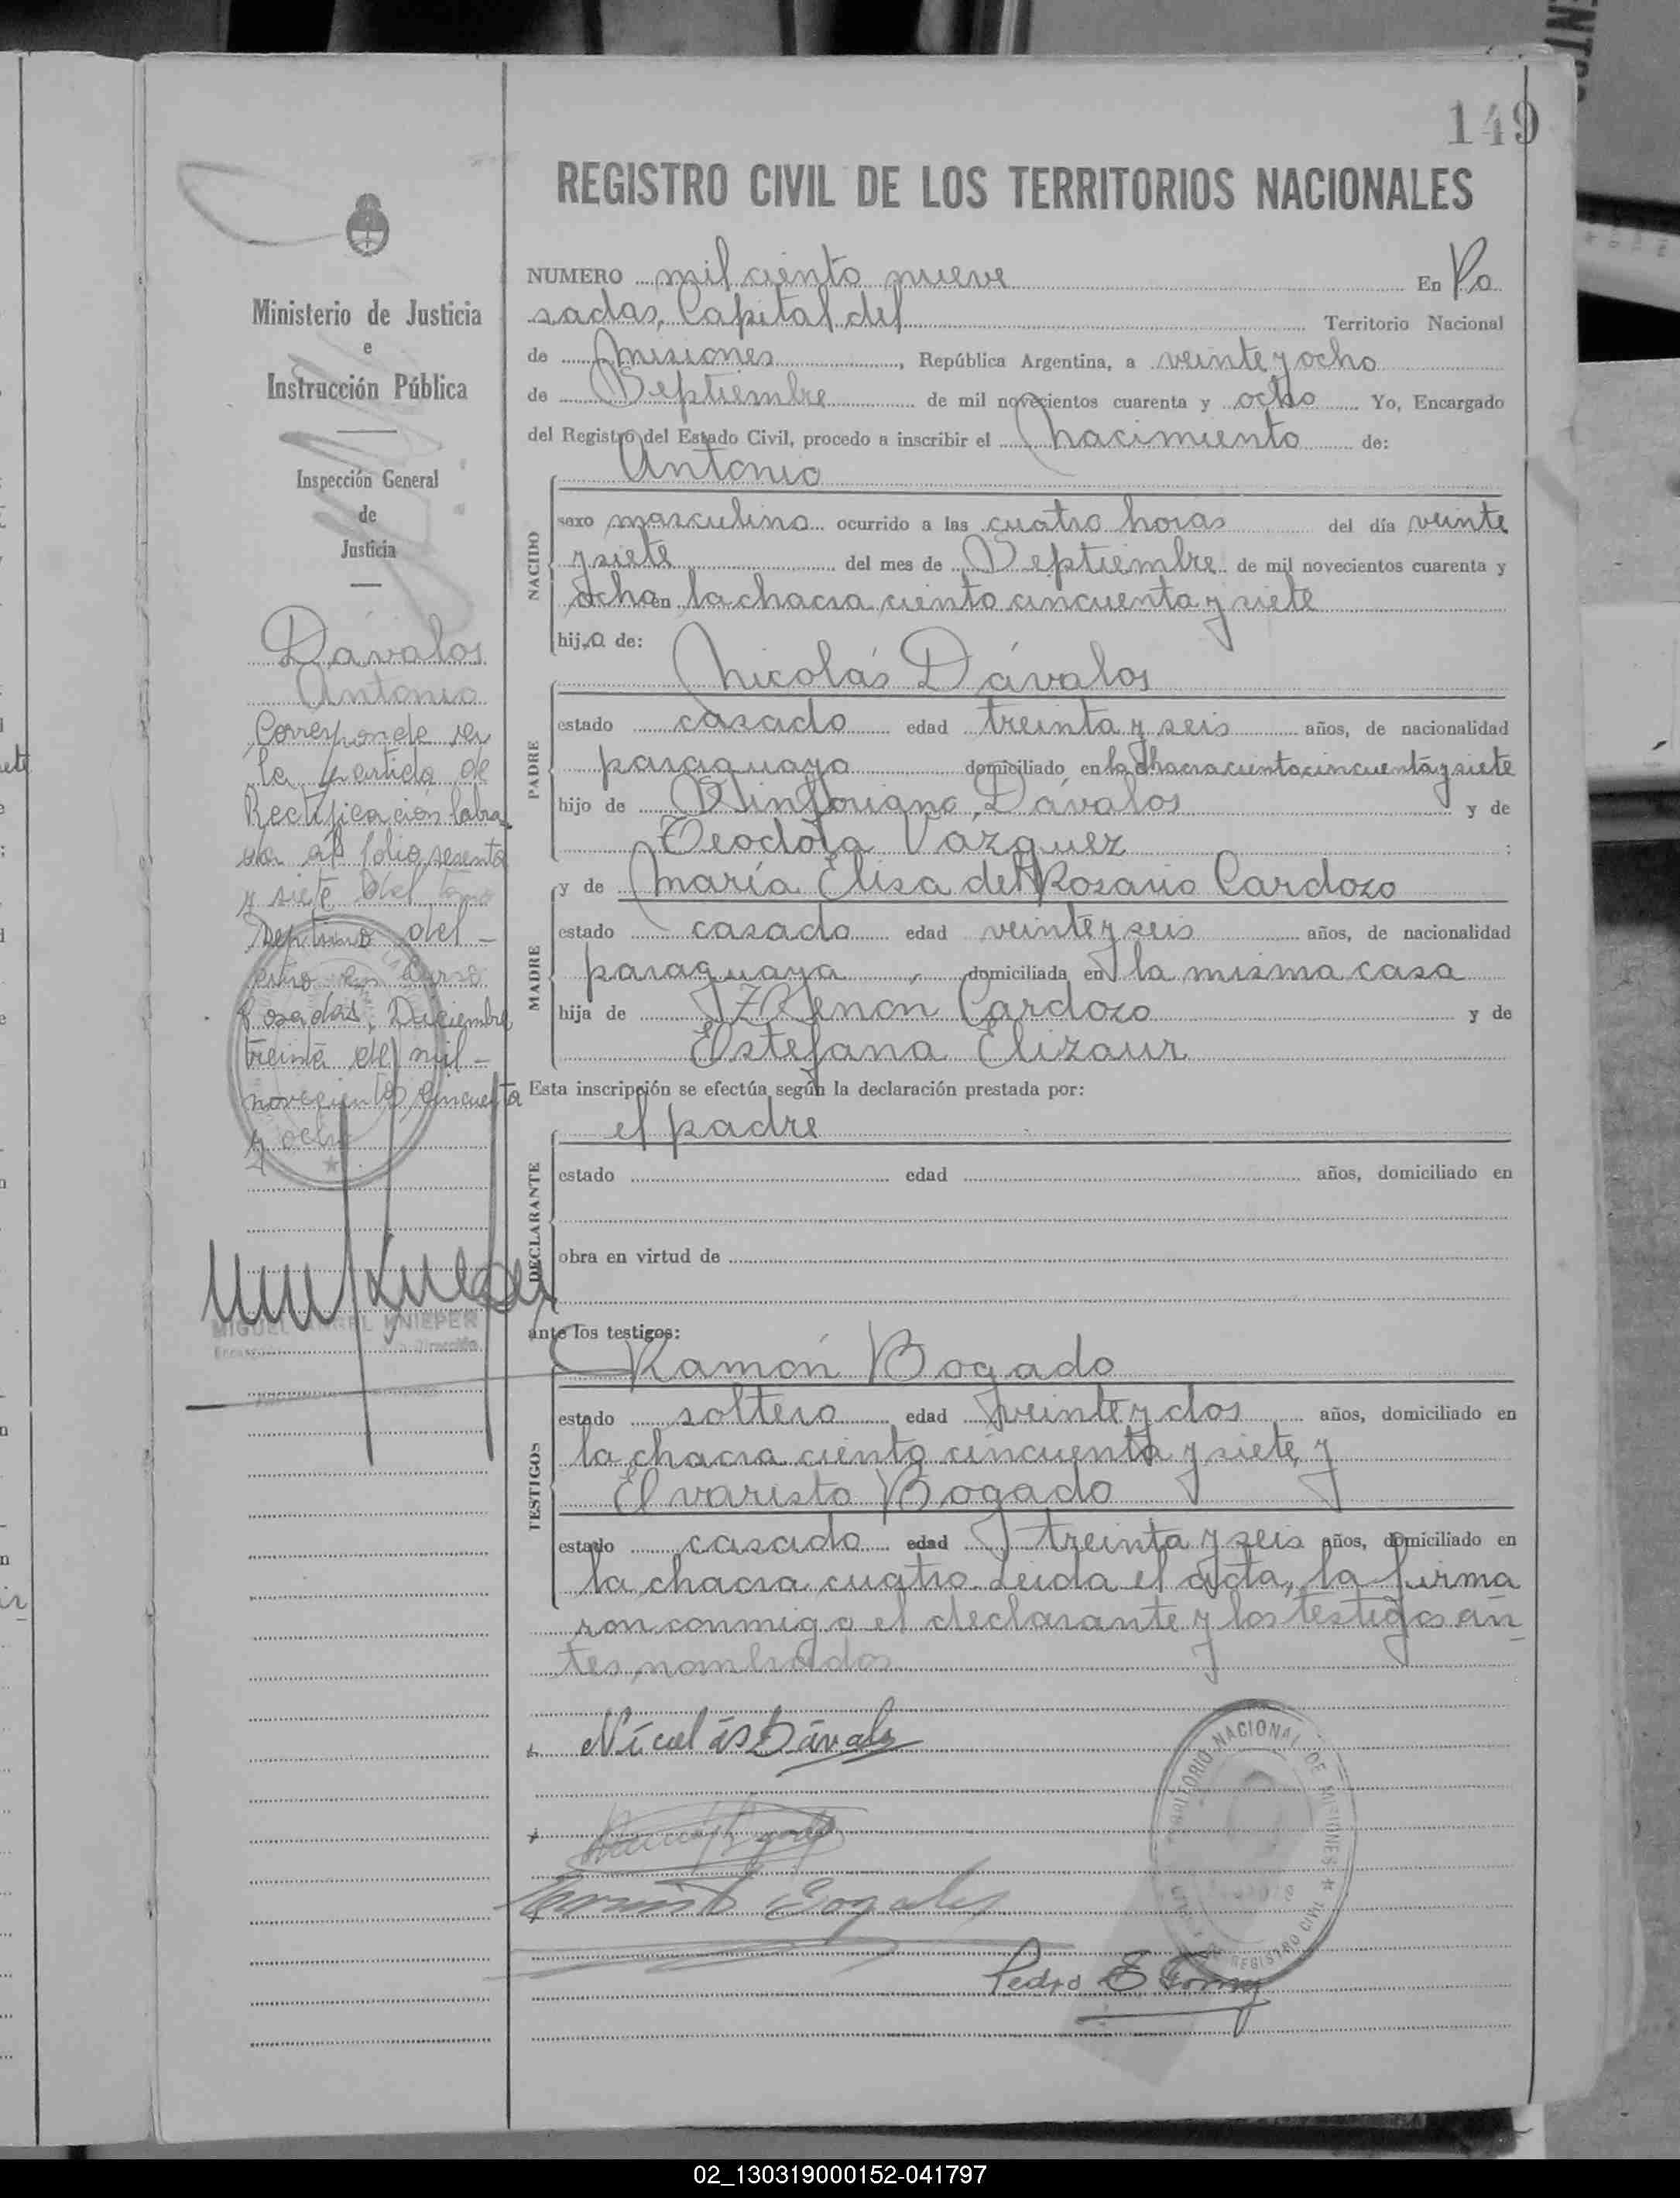 149
REGISTRO CIVIL DE LOS TERRITORIOS NACIONALES
Ministerio de Justicia
e
Instrucción Pública
Inspección General
de
Justicia
Dávalos
Antonio
Corresponde ser
la partida de
Rectificación labra
da al folio sesenta
y siete del tomo
Septimo del
año en curso
Posadas, Diciembre
treinta de mil
novecientos cincuenta
y ocho
MIGUEL ANGEL KNIEPER
NUMERO mil ciento nueve En Po
sadas, Capital del Territorio Nacional
de Misiones, República Argentina, a veinte y ocho
de Septiembre de mil novecientos cuarenta y ocho Yo, Encargado
del Registro del Estado Civil, procedo a inscribir el Nacimiento de:
Antonio
NACIDO
sexo masculino ocurrido a las cuatro horas del día veinte
y siete del mes de Septiembre de mil novecientos cuarenta y
ocho en la chacra ciento cincuenta y siete
hijo de:
Nicolás Dávalos
PADRE
estado casado edad treinta y seis años, de nacionalidad
paraguayo domiciliado en la chacra ciento cincuenta y siete
hijo de Sinforiano Dávalos y de
Teodola Vazquez ;
y de María Elisa del Rosario Cardozo
MADRE
estado casada edad veinte y seis años, de nacionalidad
paraguaya, domiciliada en la misma casa
hija de Zenon Cardozo y de
Estefana Elizaur
Esta inscripción se efectúa según la declaración prestada por:
el padre
DECLARANTE
estado edad años, domiciliado en
obra en virtud de
ante los testigos:
Ramón Bogado
TESTIGOS
estado soltero edad veinte y dos años, domiciliado en
la chacra ciento cincuenta y siete, y
Evaristo Bogado
estado casado edad treinta y seis años, domiciliado en
la chacra cuatro. Leida el acta, la firma
ron conmigo el declarante y los testigos an
tes nombrados
Nícolás Dávalos
Evaristo Bogado
TERRITORIO NACIONAL DE MISIONES ★
REGISTRO CIVIL
Pedro E
02_130319000152-041797